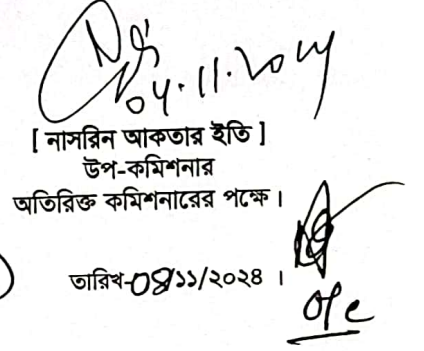 04.11.2024
[ নাসরিন আকতার ইতি ]
উপ-কমিশনার
অতিরিক্ত কমিশনারের পক্ষে।
তারিখ-০৪/১১/২০২৪ ।
o/c